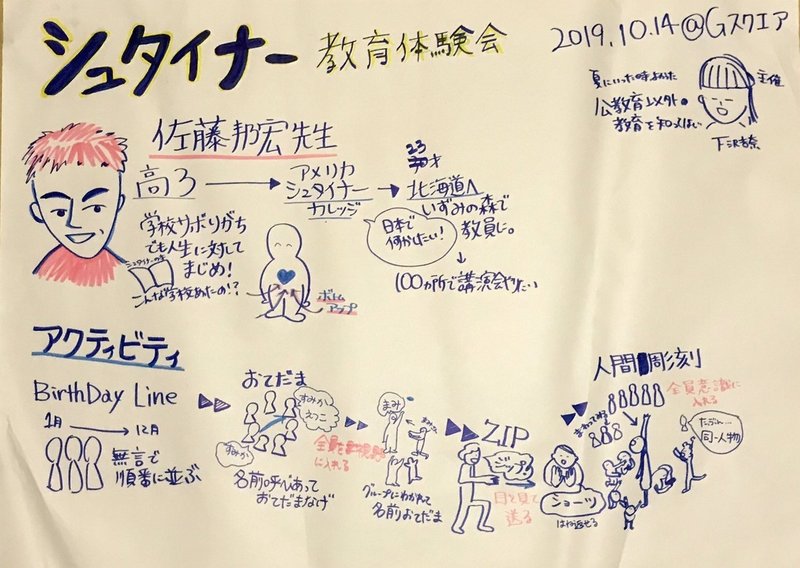 シュタイナー 教育体験会
2019.10.14@Gスクエア
夏にいった時よかった
公教育以外の
教育を知ってほしい
主催
佐藤邦宏先生
高3
アメリカ
シュタイナー
カレッジ
23才
北海道へ
いずみの森で
教員に。
日本で
何かしたい!
100ヵ所で講演会やりたい
学校サボりがち
でも人生に対して
まじめ!
シュタイナーの本
こんな学校あったの!?
ボトム
アップ
アクティビティ
BirthDay Line
1月
12月
無言で
順番に並ぶ
おてだま
すみか
えっこ
すみか
全員を
に入れる
名前呼びあって
おてだまなげ
まみ
グループにわかれて
名前おてだま
ZIP
ジップ!
目を見て
送る
ショーッ
はね返せる
人間彫刻
全員意識に
入れる
たぶん…
同一人物